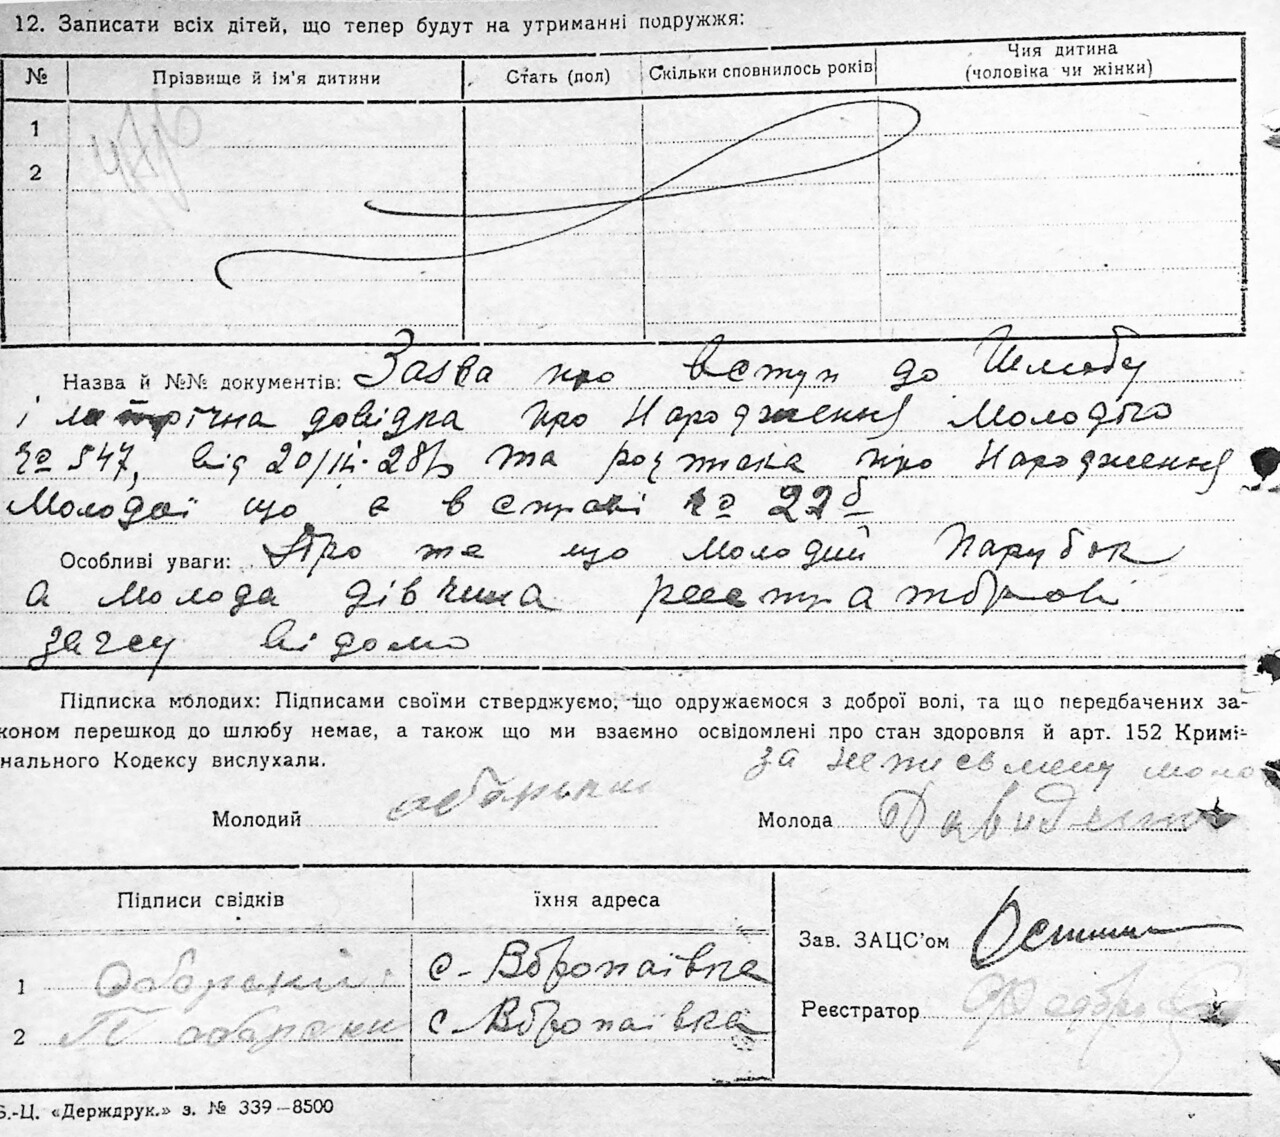 12. Записати всіх дітей, що тепер будут на утриманні подружжя:
№ Прізвище й ім'я дитини Стать (пол) Скільки сповнилось років Чия дитина (чоловіка чи жінки)
1
2
Назва й №№ документів: Заява про вступ до Шлюбу
і метрічна довідка про Народження Молодого
№ 547, від 20/III-28р та розписка про Народження
Молодої що є в справі № 22б
Особливі уваги: Про те що молодий Парубок
а молода дівчина реєстраторові
загсу відомо
Підписка молодих: Підписами своїми стверджуємо, що одружаємося з доброї волі, та що передбачених за-
коном перешкод до шлюбу немає, а також що ми взаємно освідомлені про стан здоровля й арт. 152 Кримі-
нального Кодексу вислухали.
за неписьмену
Молодий Молода Давиденко
Підписи свідків їхня адреса
Зав. ЗАЦС'ом
1 с-
2 с
Реєстратор
Б.-Ц. «Держдрук.» з. № 339—8500